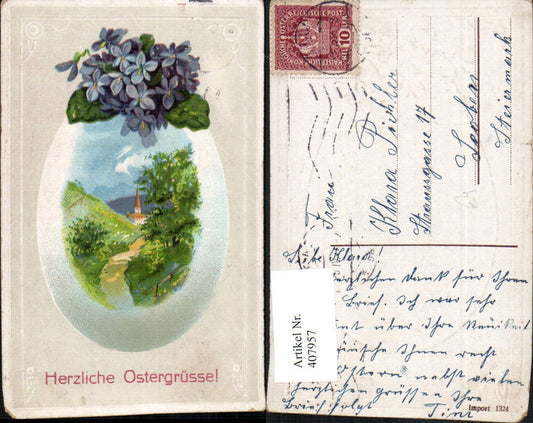 Herzliche Ostergrüsse!
KAISERLICHE KÖNIGLICHE ÖSTERREICHISCHE POST
10
HELLER
Frau
Klara Pichler
Straussgasse 17
Leoben
Steiermark
Liebe Klara!
Herzlichen Dank für Ihren
Brief. Ich war sehr
über Ihre
wünsche Ihnen recht
Ostern nebst vielen
herzlichen grüssen Ihre
Brief folgt Tini
Artikel Nr.
407957
Import 1324